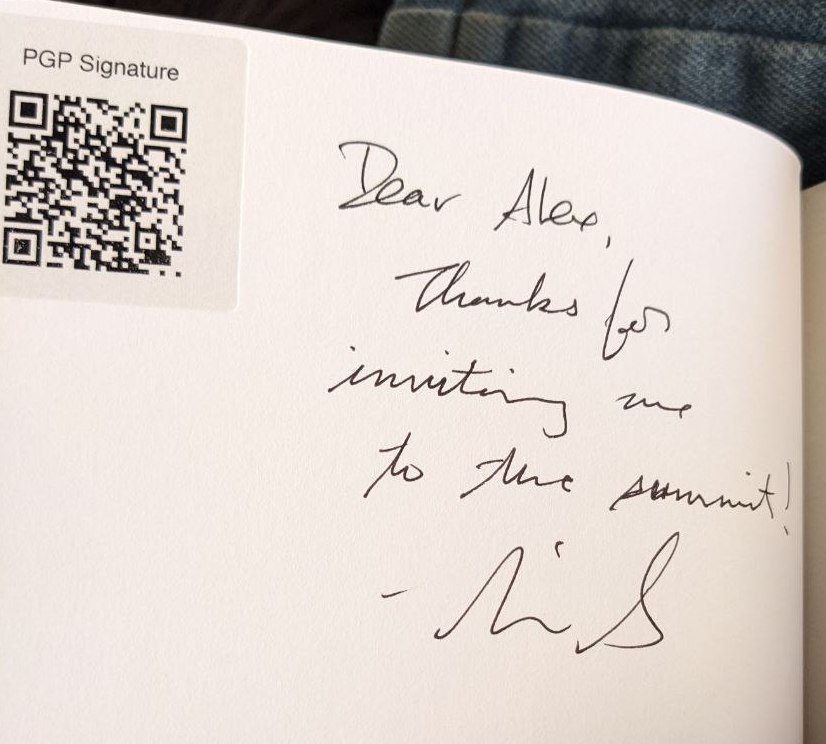 PGP Signature
Dear Alex,
Thanks for
inviting me
to the summit!